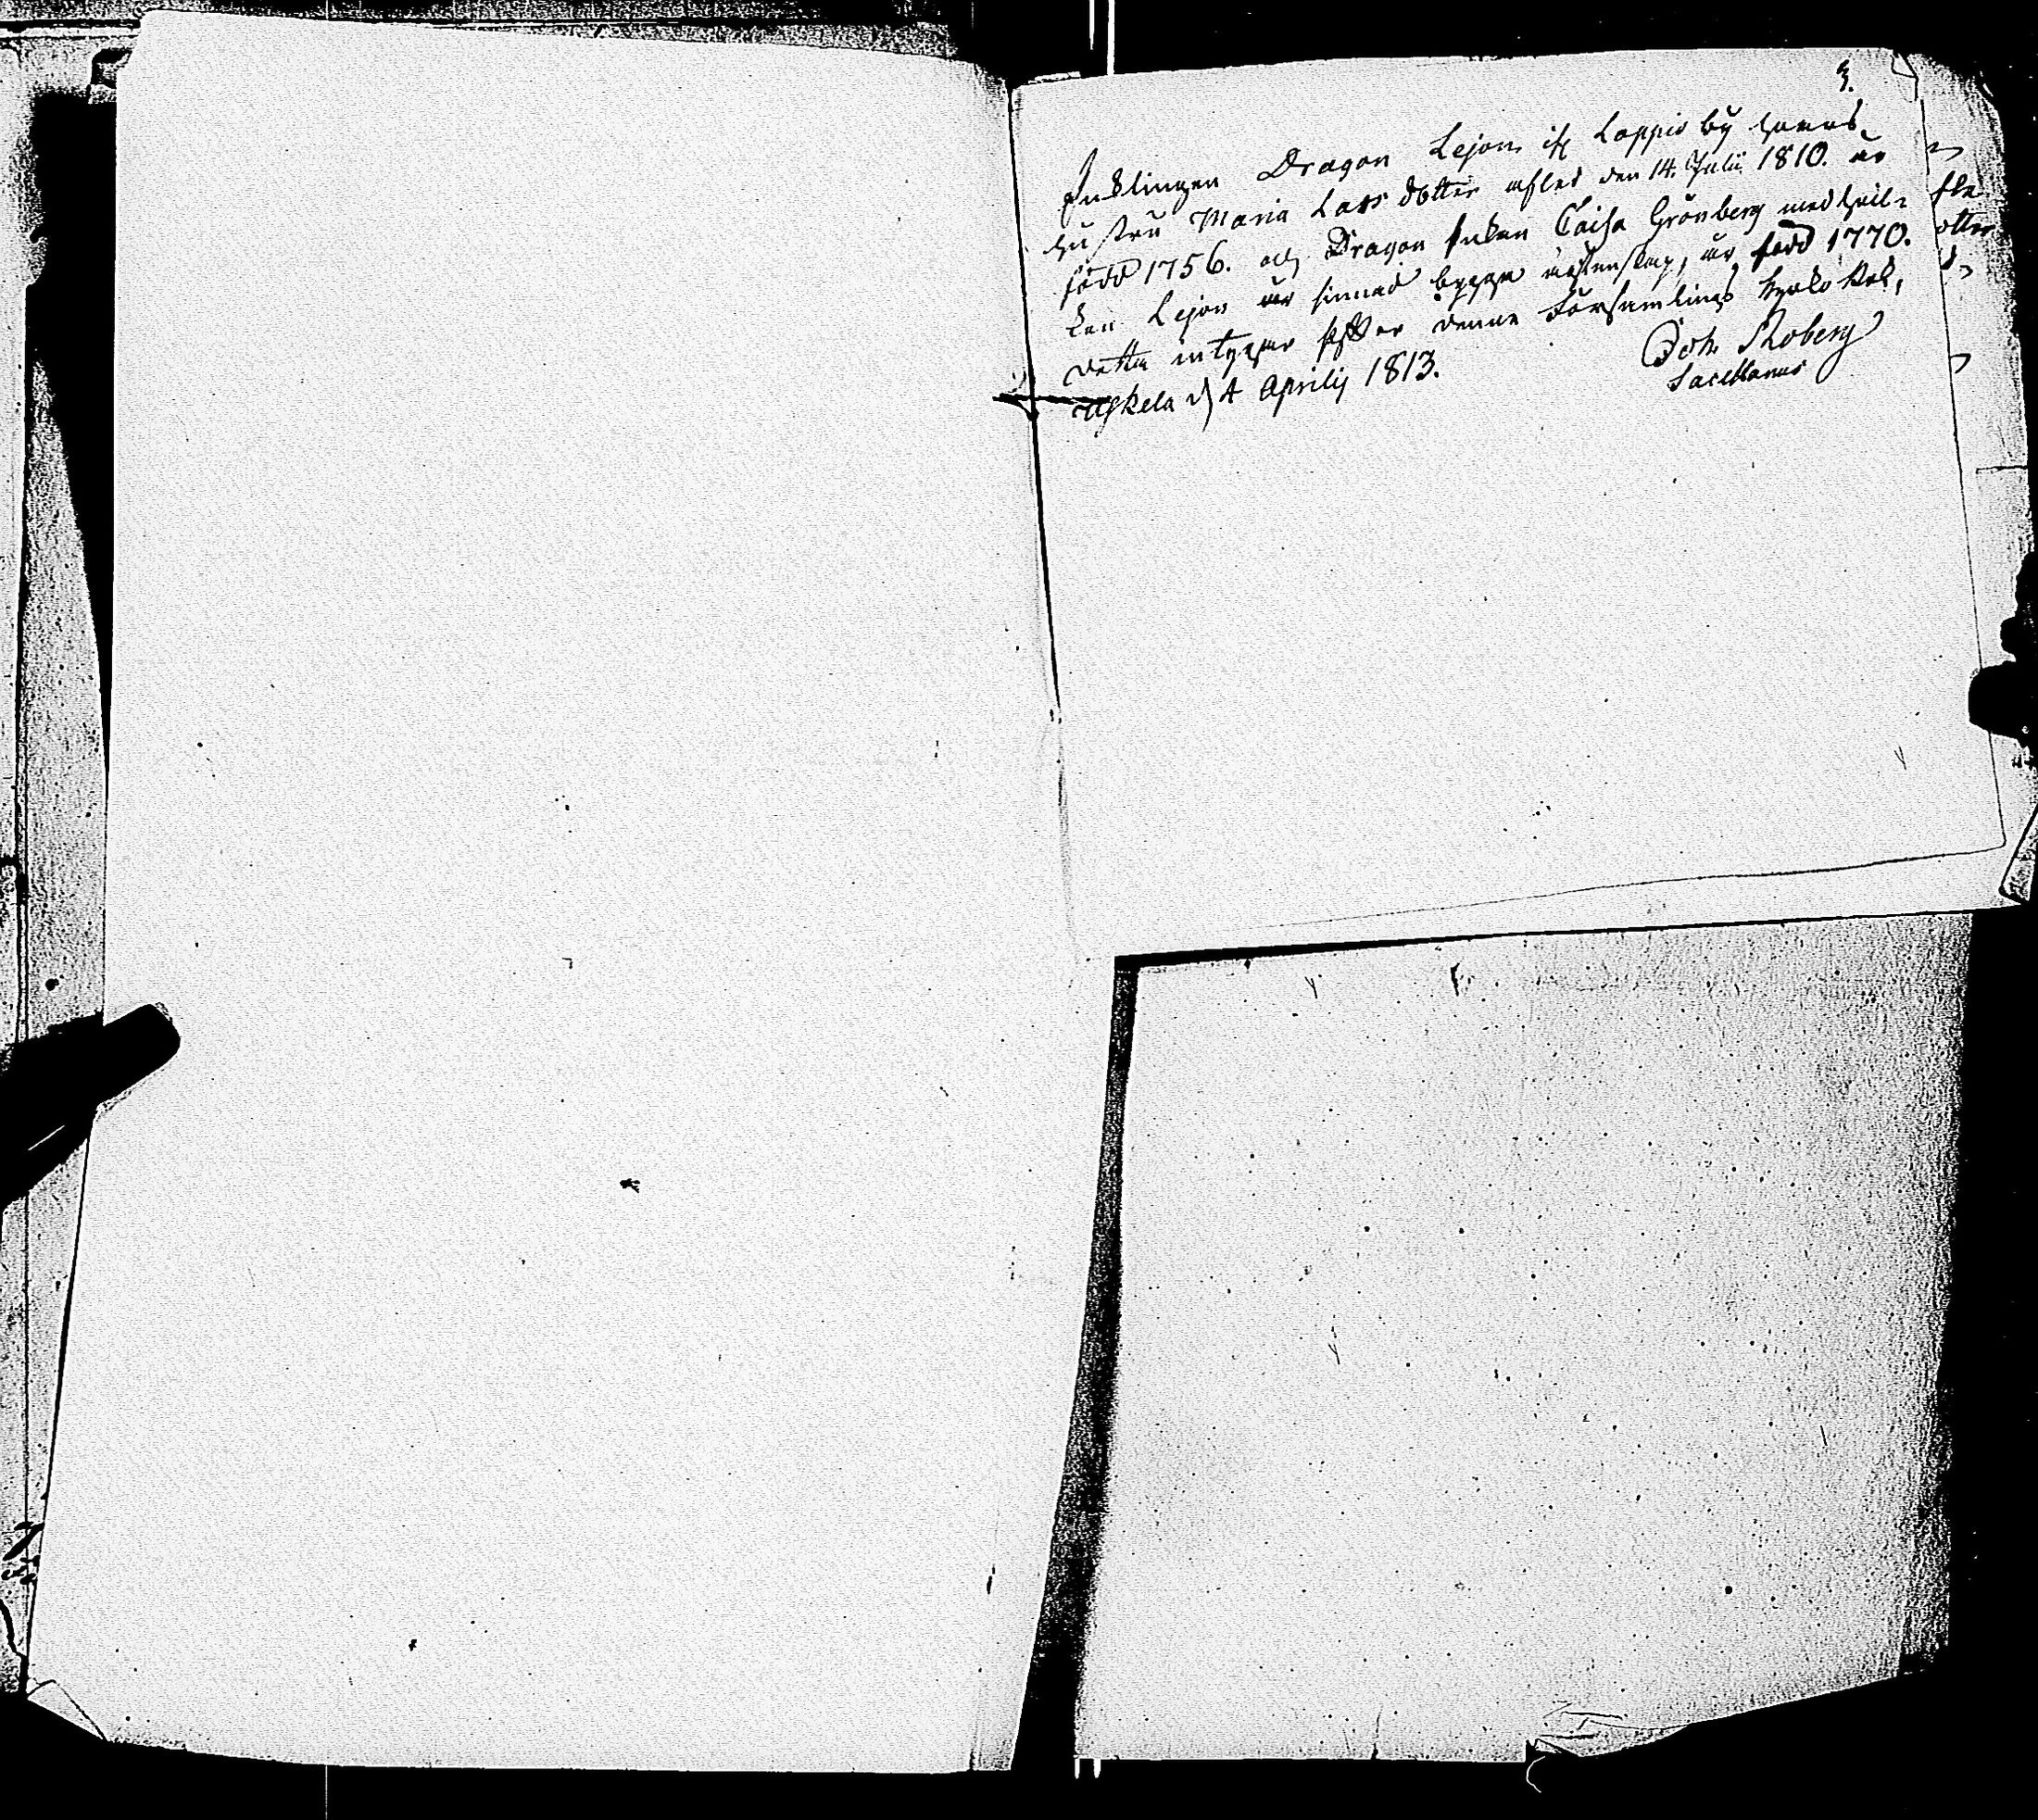 3.
Enklingen Dragon Lejon if Loppis by hvars
hustru Maria Lars dotter afled den 14. Julii 1810. är
född 1756. och Dragon Enkan Caisa Grönberg med hvil-
ken Lejon är sinnad bygga äktenskap, är född 1770.
detta intygar efter denna Församlings Kyrko bok,
Uskela d 4 Aprilis 1813.
Joh. Moberg
Sacellanus
otter